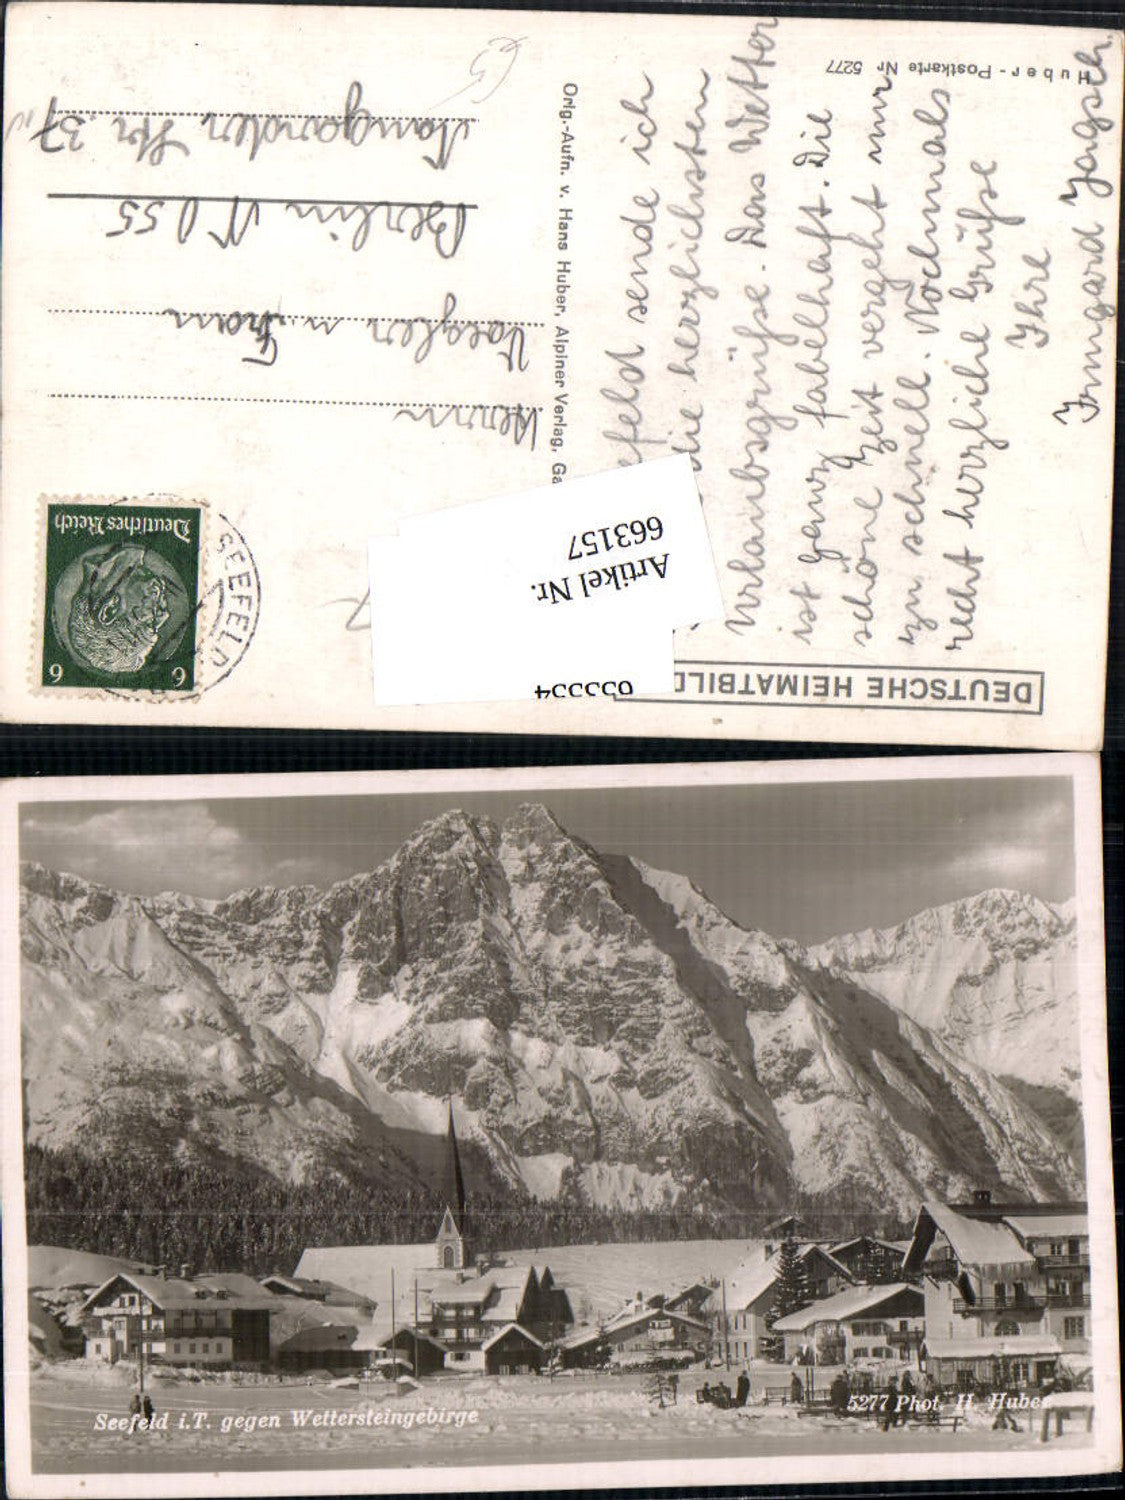 Huber-Postkarte Nr 5277
DEUTSCHE HEIMATBILD
Orig.-Aufn. v. Hans Huber, Alpiner Verlag, Ga
efeld sende ich
die herzlichsten
Urlaubsgrüße. Das Wetter
ist ganz fabelhaft. Die
schöne Zeit vergeht nur
zu schnell. Nochmals
recht herzliche Grüße
Ihre
Irmgard Jagsch.
Deutsches Reich
6 6
SEEFELD
Herrn
u. Frau
Berlin NO 55
Naugarder Str. 37
Artikel Nr.
663157
Seefeld i.T. gegen Wettersteingebirge
5277 Phot. H. Huber